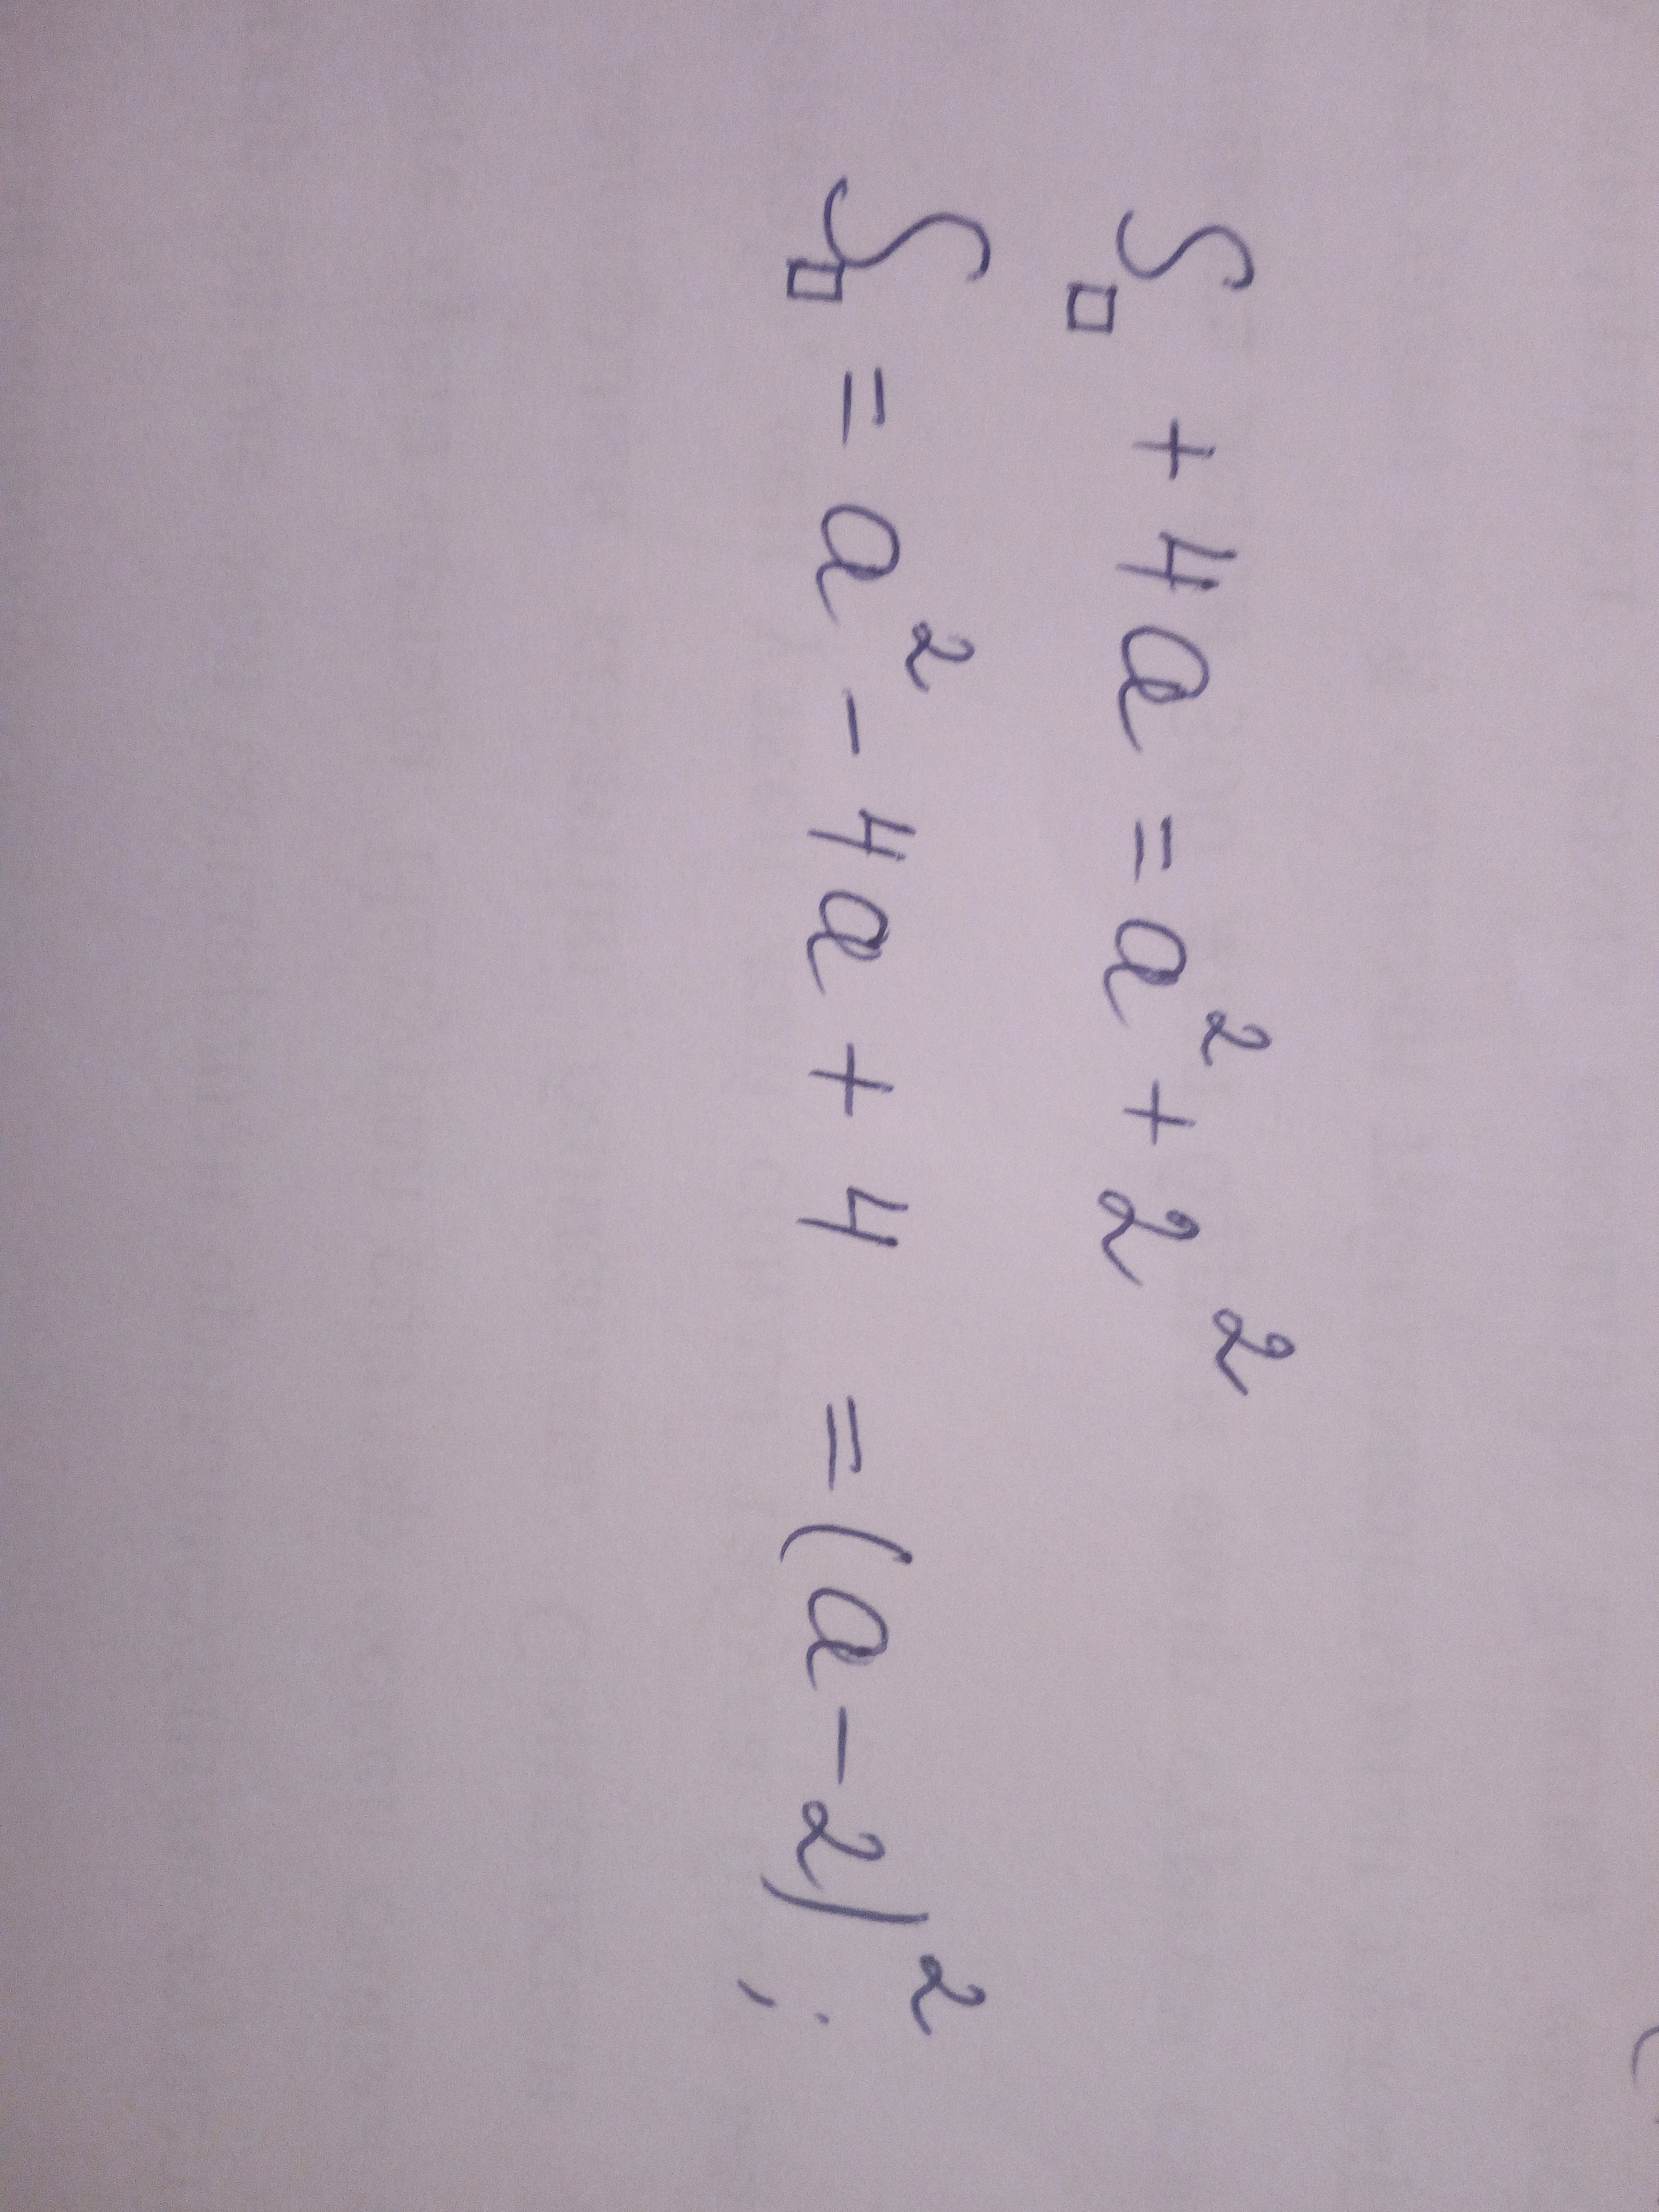 S□ + 4a = a² + 2²
S□ = a² - 4a + 4 = (a - 2)²;